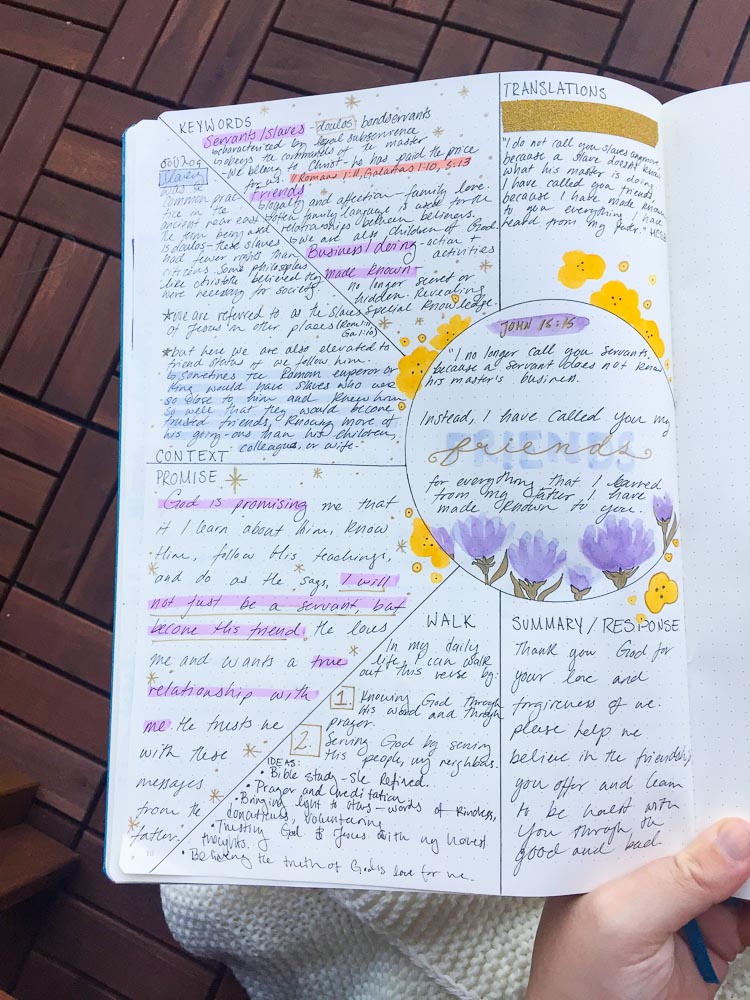 KEYWORDS
Servants/slaves - doulos - bondservants
characterized by legal subservience
obeys the commands of the master
we belong to Christ - he has paid the price
for us. Romans 1:1, Galatians 1:10, 5:13
Friends
loyalty and affection - family love.
often family language is used for the
relationships between believers.
we are also children of God.
Business/doing - action +
activities
made known
no longer secret or
hidden. Revealing
special knowledge.
δοῦλος
Slavery
was a
common prac-
tice in the
ancient near east
the term being used
is doulos - these slaves
had fewer rights than
citizens. Some philosophers
like christotle believed they
were necessary for society.
*we are referred to as the slaves
of Jesus in other places (Rom 1:1, Ga. 1:10)
*but here we are also elevated to
friend status if we follow him.
Sometimes the Roman emperor or
King would have slaves who were
so close to him and knew him
so well that they would become
trusted friends, knowing more of
his going-ons than his children,
colleagues, or wife.
CONTEXT
TRANSLATIONS
"I do not call you slaves anymore,
because a slave doesn't know
what his master is doing.
I have called you friends,
because I have made known
to you everything I have
heard from my father." HCSB
JOHN 15:15
"I no longer call you servants,
because a servant does not know
his master's business.
Instead, I have called you my
FRIENDS
friends
for everything that I learned
from my father I have
made known to you.
PROMISE
God is promising me that
if I learn about him, know
Him, follow His teachings,
and do as He says, I will
not just be a servant, but
become His friend. He loves
me and wants a true
relationship with
me. He trusts me
with these
messages
from the
father.
WALK
In my daily
life, I can walk
out this verse by:
1. Knowing God through
His word and through
prayer.
2. Serving God by serving
His people, my neighbors.
IDEAS:
• Bible study - She Refined.
• Prayer and Meditation
• Bringing light to others - words of kindness,
donations, volunteering
• Trusting God & Jesus with my honest
thoughts.
• Believing the truth of God's love for me.
SUMMARY/RESPONSE
Thank you God for
your love and
forgiveness of me.
please help me
believe in the friendship
you offer and learn
to be honest with
you through the
good and bad.